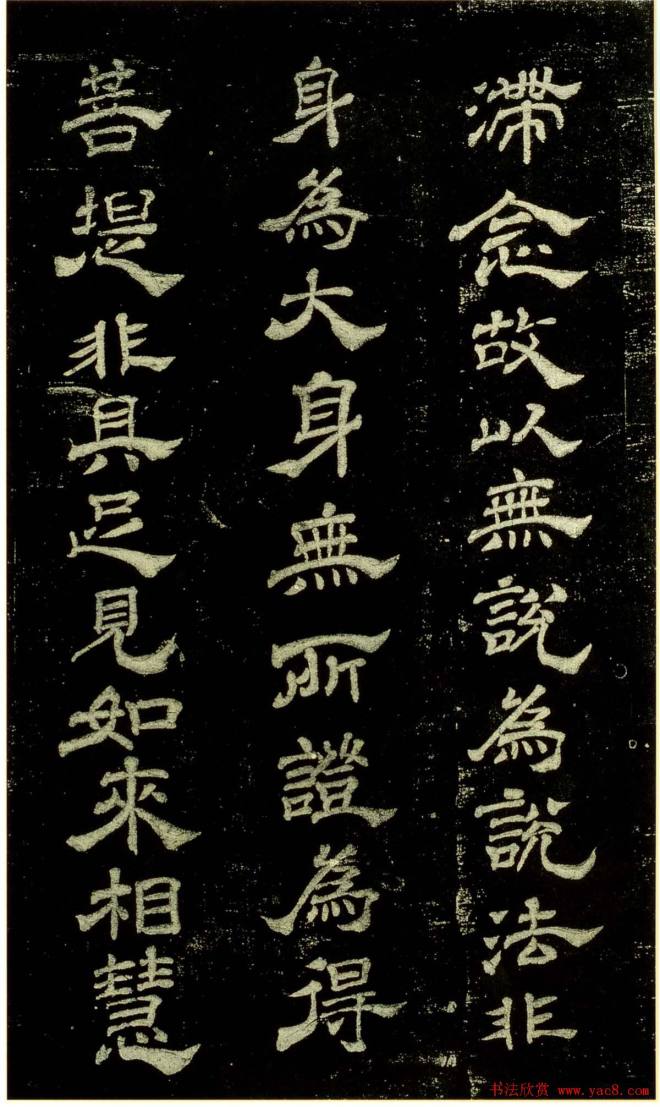 滯念故以無說為說法非
身為大身無所證為得
菩提非具足見如來相慧
书法欣赏 www.yac8.com